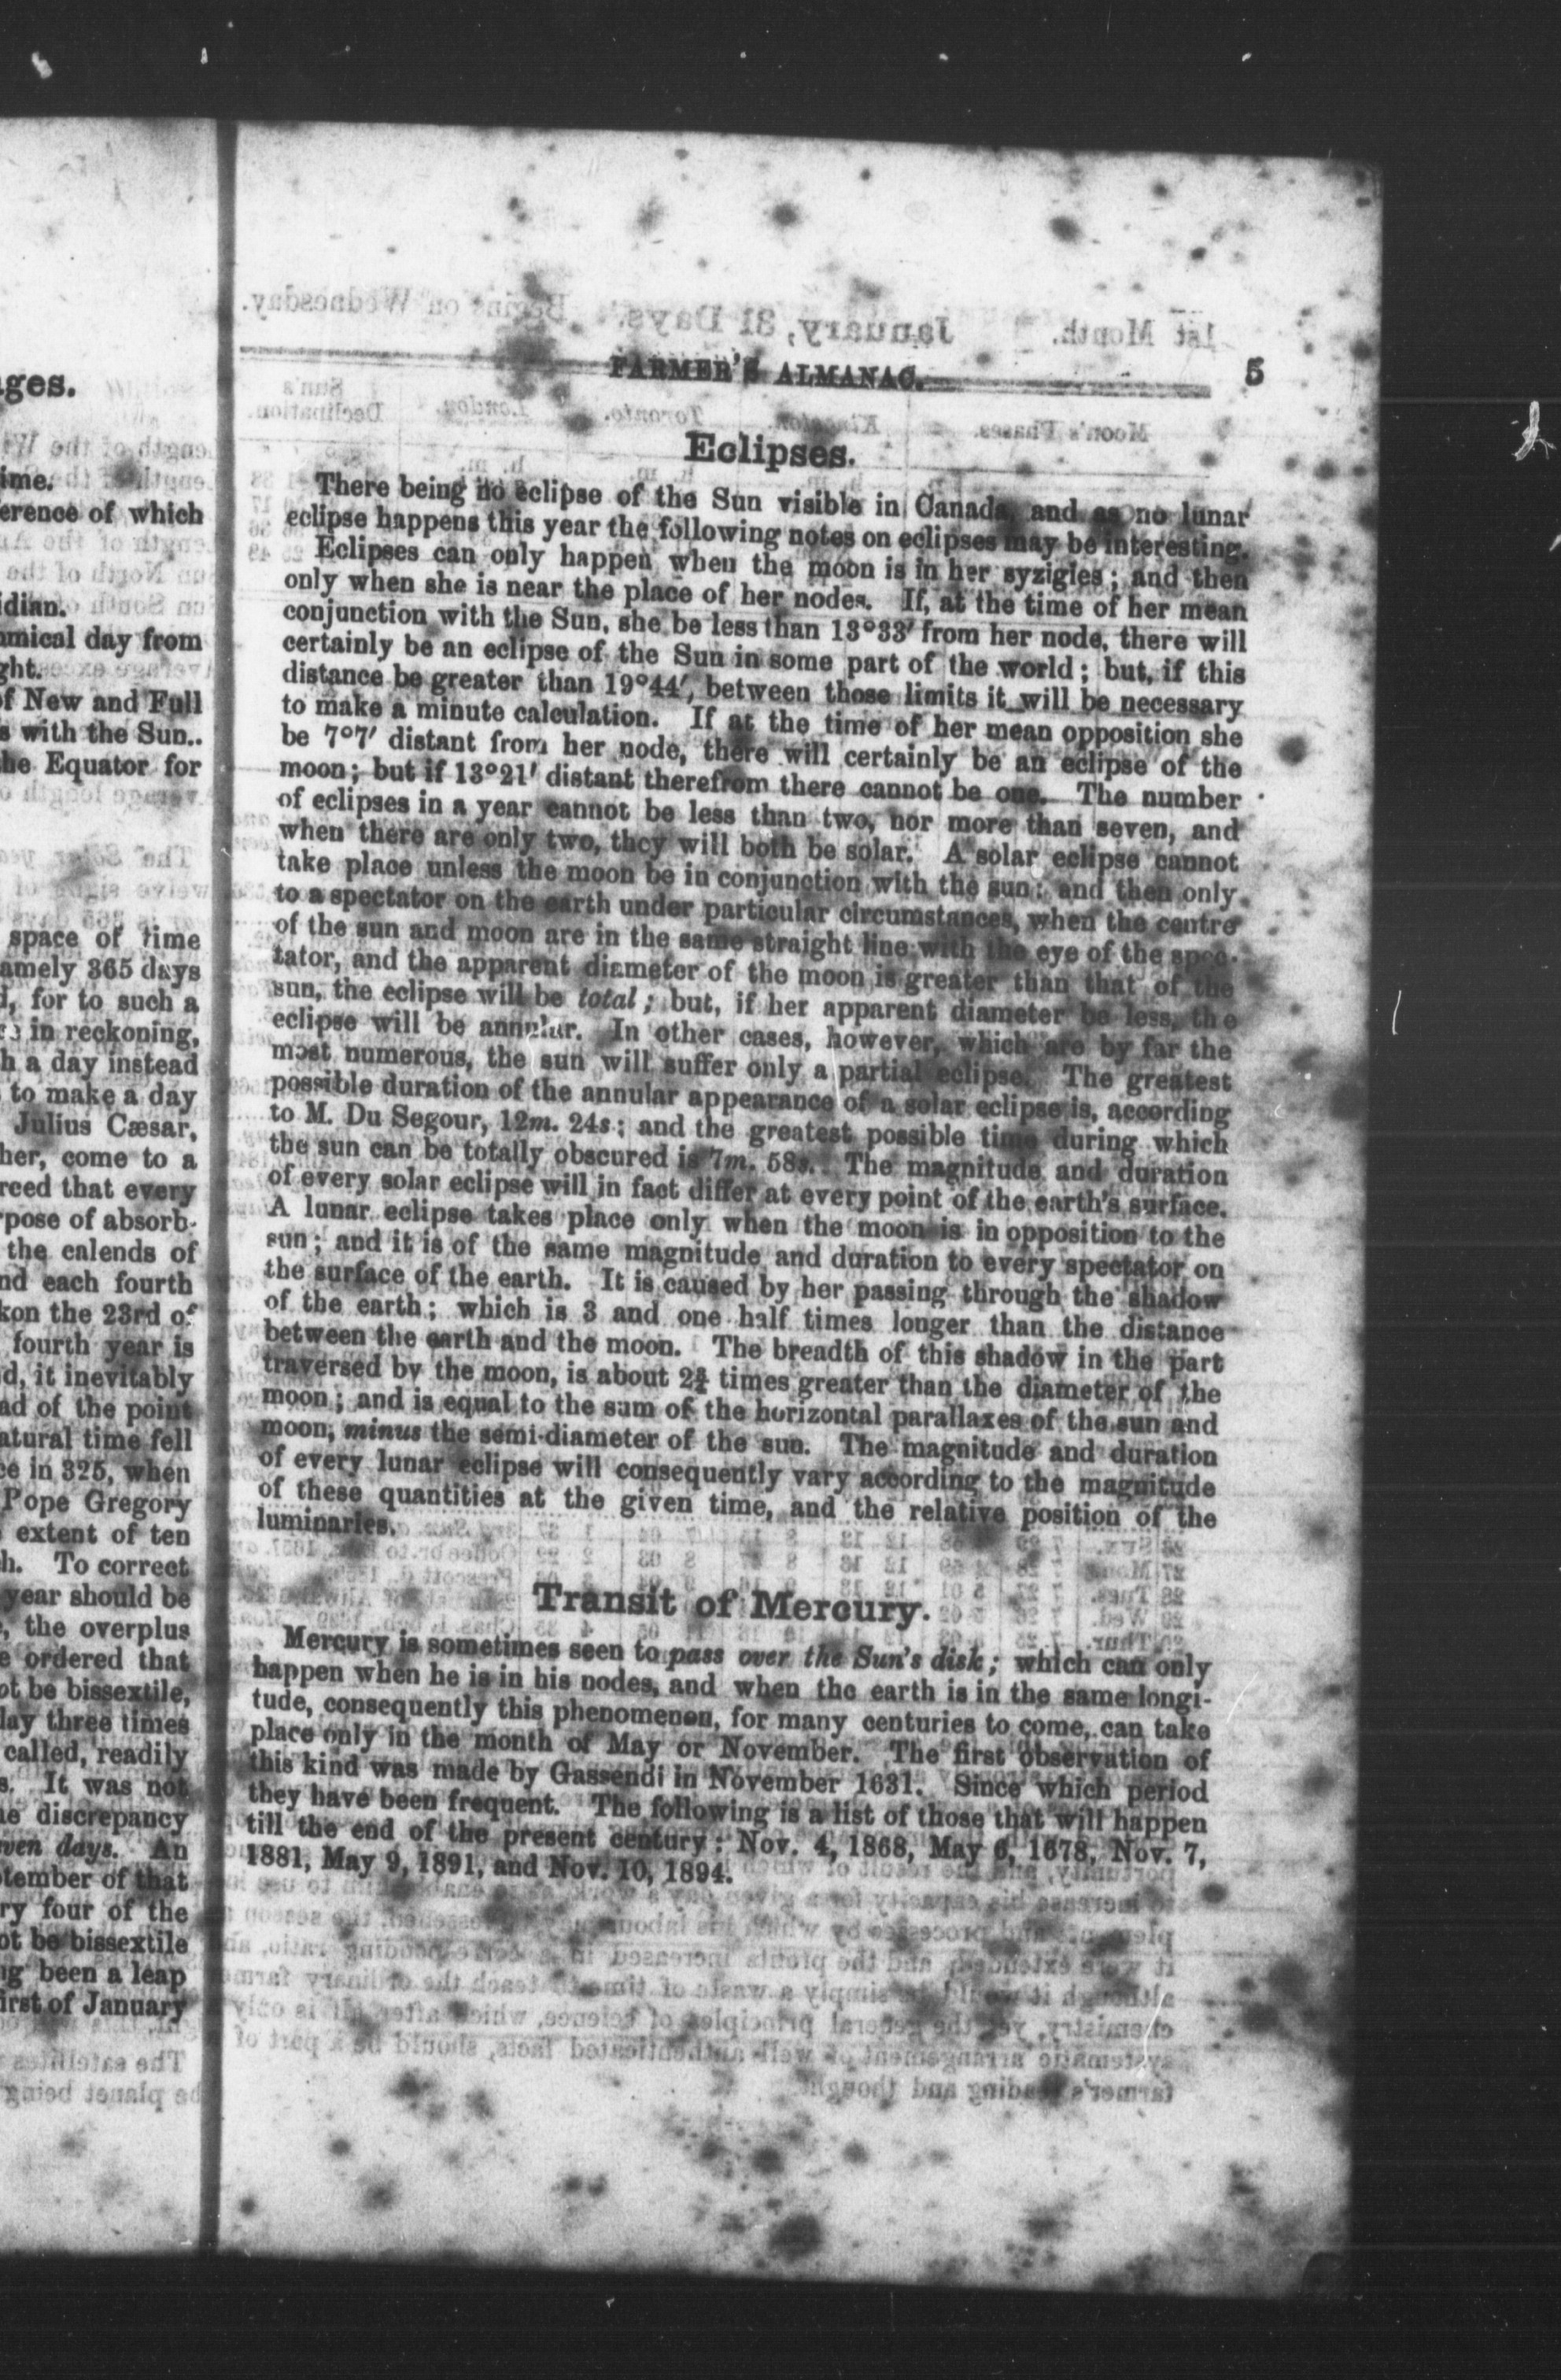 ages.
ime.
erence of which
idian.
omical day from
ght.
of New and Full
s with the Sun..
he Equator for
space of time
amely 365 days
d, for to such a
in reckoning,
h a day instead
to make a day
Julius Cæsar,
her, come to a
rced that every
rpose of absorb-
the calends of
nd each fourth
kon the 23rd of
fourth year is
d, it inevitably
ad of the point
atural time fell
ce in 325, when
Pope Gregory
extent of ten
h. To correct
year should be
, the overplus
e ordered that
ot be bissextile,
lay three times
called, readily
s. It was not
he discrepancy
even days. An
tember of that
ry four of the
ot be bissextile
ng been a leap
first of January
FARMER'S ALMANAC. 5
Eclipses.
There being no eclipse of the Sun visible in Canada, and as no lunar
eclipse happens this year the following notes on eclipses may be interesting.
Eclipses can only happen when the moon is in her syzigies; and then
only when she is near the place of her nodes. If, at the time of her mean
conjunction with the Sun, she be less than 13°33′ from her node, there will
certainly be an eclipse of the Sun in some part of the world; but, if this
distance be greater than 19°44′, between those limits it will be necessary
to make a minute calculation. If at the time of her mean opposition she
be 7°7′ distant from her node, there will certainly be an eclipse of the
moon; but if 13°21′ distant therefrom there cannot be one. The number
of eclipses in a year cannot be less than two, nor more than seven, and
when there are only two, they will both be solar. A solar eclipse cannot
take place unless the moon be in conjunction with the sun: and then only
to a spectator on the earth under particular circumstances, when the centre
of the sun and moon are in the same straight line with the eye of the spec-
tator, and the apparent diameter of the moon is greater than that of the
sun, the eclipse will be total; but, if her apparent diameter be less, the
eclipse will be annular. In other cases, however, which are by far the
most numerous, the sun will suffer only a partial eclipse. The greatest
possible duration of the annular appearance of a solar eclipse is, according
to M. Du Segour, 12m. 24s.; and the greatest possible time during which
the sun can be totally obscured is 7m. 58s. The magnitude and duration
of every solar eclipse will in fact differ at every point of the earth's surface.
A lunar eclipse takes place only when the moon is in opposition to the
sun; and it is of the same magnitude and duration to every spectator on
the surface of the earth. It is caused by her passing through the shadow
of the earth; which is 3 and one half times longer than the distance
between the earth and the moon. The breadth of this shadow in the part
traversed by the moon, is about times greater than the diameter of the
moon; and is equal to the sum of the horizontal parallaxes of the sun and
moon, minus the semi-diameter of the sun. The magnitude and duration
of every lunar eclipse will consequently vary according to the magnitude
of these quantities at the given time, and the relative position of the
luminaries.
Transit of Mercury.
Mercury is sometimes seen to pass over the Sun's disk; which can only
happen when he is in his nodes, and when the earth is in the same longi-
tude, consequently this phenomenon, for many centuries to come, can take
place only in the month of May or November. The first observation of
this kind was made by Gassendi in November 1631. Since which period
they have been frequent. The following is a list of those that will happen
till the end of the present century: Nov. 4, 1868, May 6, 1678, Nov. 7,
1881, May 9, 1891, and Nov. 10, 1894.